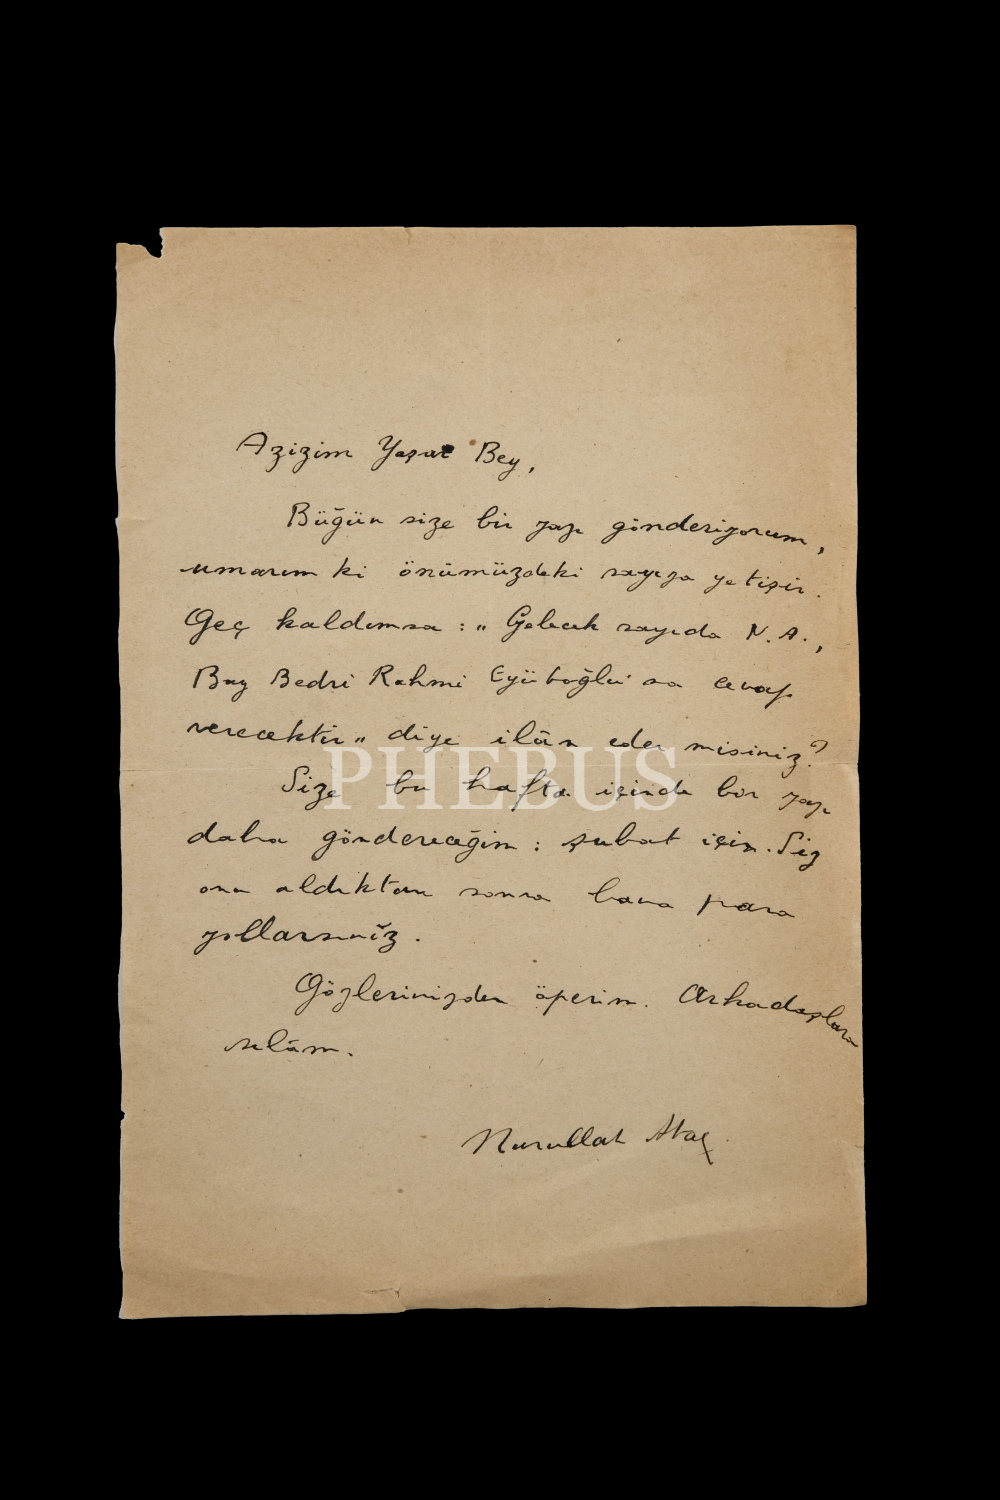 Azizim Yaşar Bey,
Bügün size bir yazı gönderiyorum,
umarım ki önümüzdeki sayıya yetişir.
Geç kaldımsa : „ Gelecek sayıda N. A.,
Bay Bedri Rahmi Eyüboğlu'na cevap
verecektir „ diye ilân eder misiniz?
PHEBUS
Size bu hafta içinde bir yazı
daha göndereceğim : şubat için. Siz
onu aldıktan sonra bana para
yollarsınız.
Gözlerinizden öperim. Arkadaşlara
selâm.
Nurullah Ataç